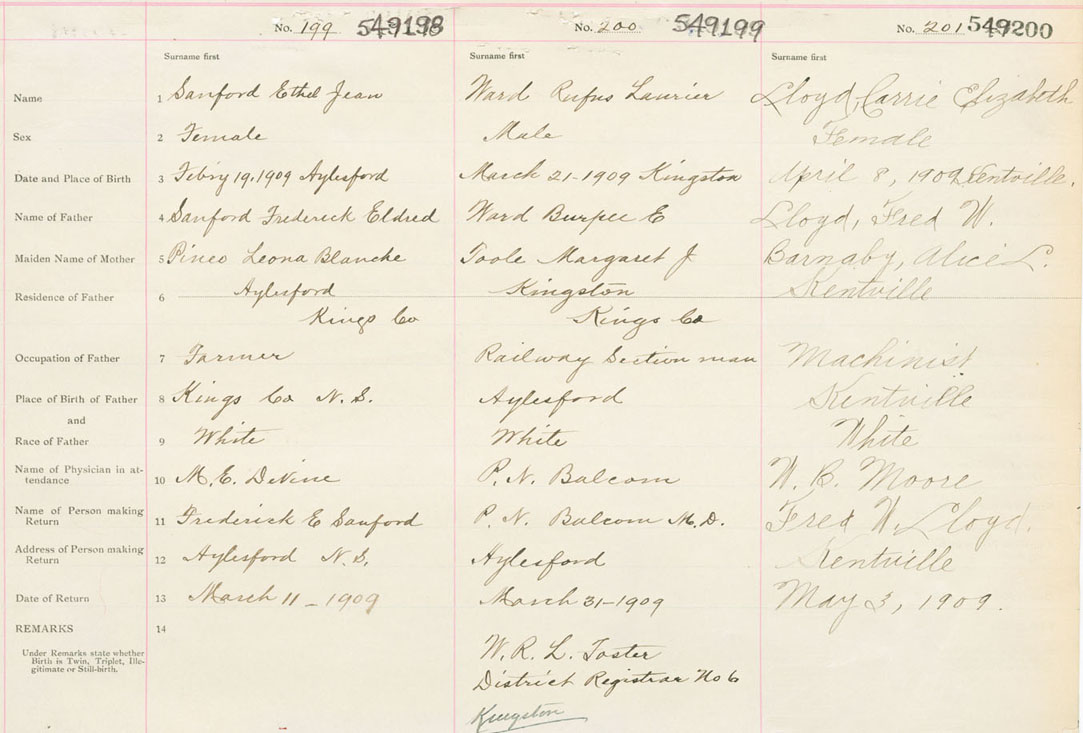 No. 199 549198 No. 200 549199 No. 201 549200
Surname first Surname first Surname first
Name 1 Sanford Ethel Jean Ward Rufus Laurier Lloyd, Carrie Elizabeth
Sex 2 Female Male Female
Date and Place of Birth 3 Febry 19, 1909 Aylesford March 21-1909 Kingston April 8, 1909 Kentville.
Name of Father 4 Sanford Frederick Eldred Ward Burpee E Lloyd, Fred W.
Maiden Name of Mother 5 Pineo Leona Blanche Toole Margaret J Barnaby, Alice L.
Residence of Father 6 Aylesford Kingston Kentville
Kings Co Kings Co
Occupation of Father 7 Farmer Railway Section man Machinist
Place of Birth of Father 8 Kings Co N.S. Aylesford Kentville
and
Race of Father 9 White White White
Name of Physician in at-
tendance 10 M. E. DeVine P. N. Balcom W. B. Moore
Name of Person making
Return 11 Frederick E Sanford P. N. Balcom M.D. Fred W. Lloyd.
Address of Person making
Return 12 Aylesford N.S. Aylesford Kentville
Date of Return 13 March 11-1909 March 31-1909 May 3, 1909.
REMARKS 14
Under Remarks state whether
Birth is Twin, Triplet, Ille-
gitimate or Still-birth.
W. R. L. Foster
District Registrar No 6
Kingston